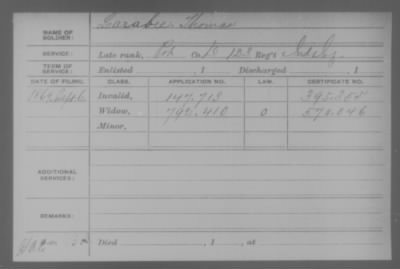 NAME OF SOLDIER: Larabee Thomas
SERVICE: Late rank, Co. Reg't
TERM OF SERVICE: Enlisted , 1 Discharged , 1
DATE OF FILING. CLASS. APPLICATION NO. LAW. CERTIFICATE NO.
Invalid, 147.713
Widow, 792.410 0 570.046
Minor,
ADDITIONAL SERVICES:
REMARKS:
Died , 1 , at